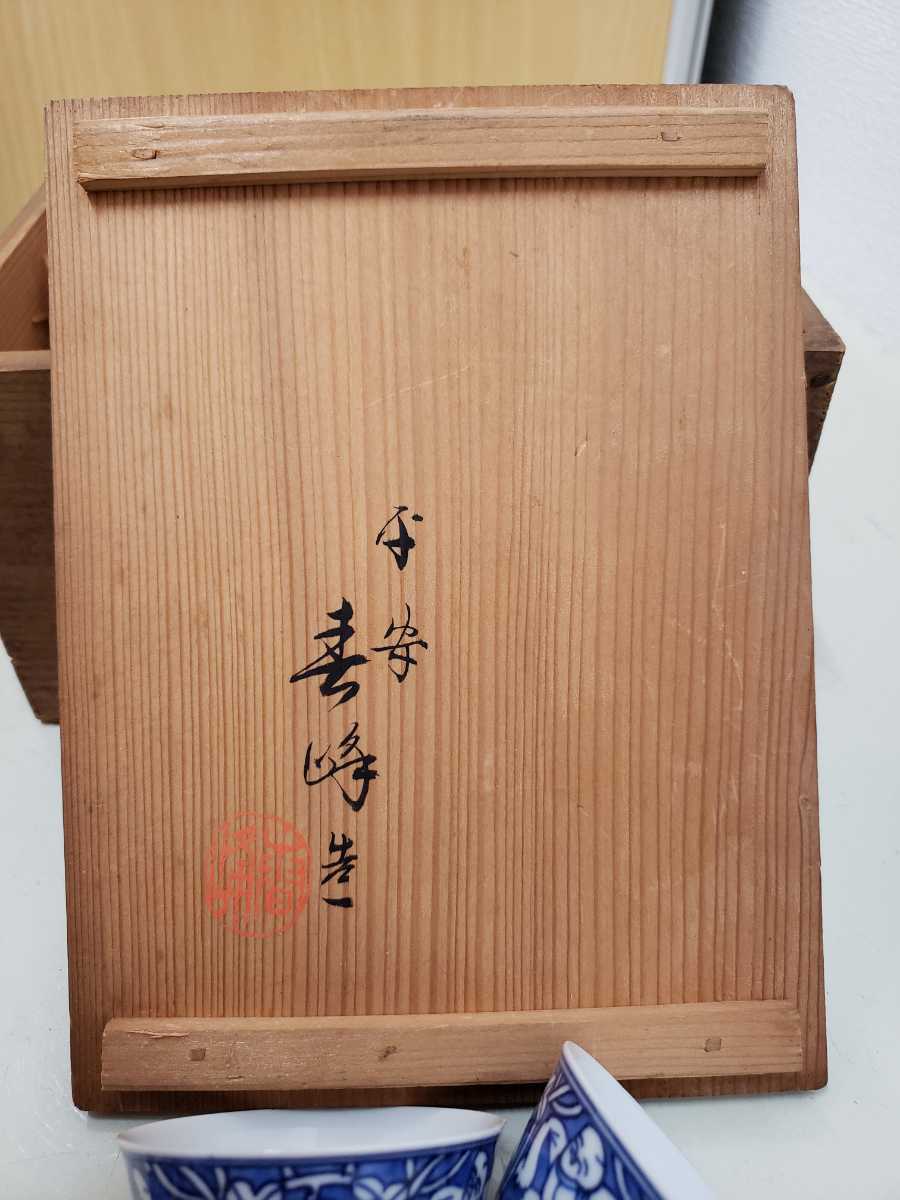 平安
春峰造